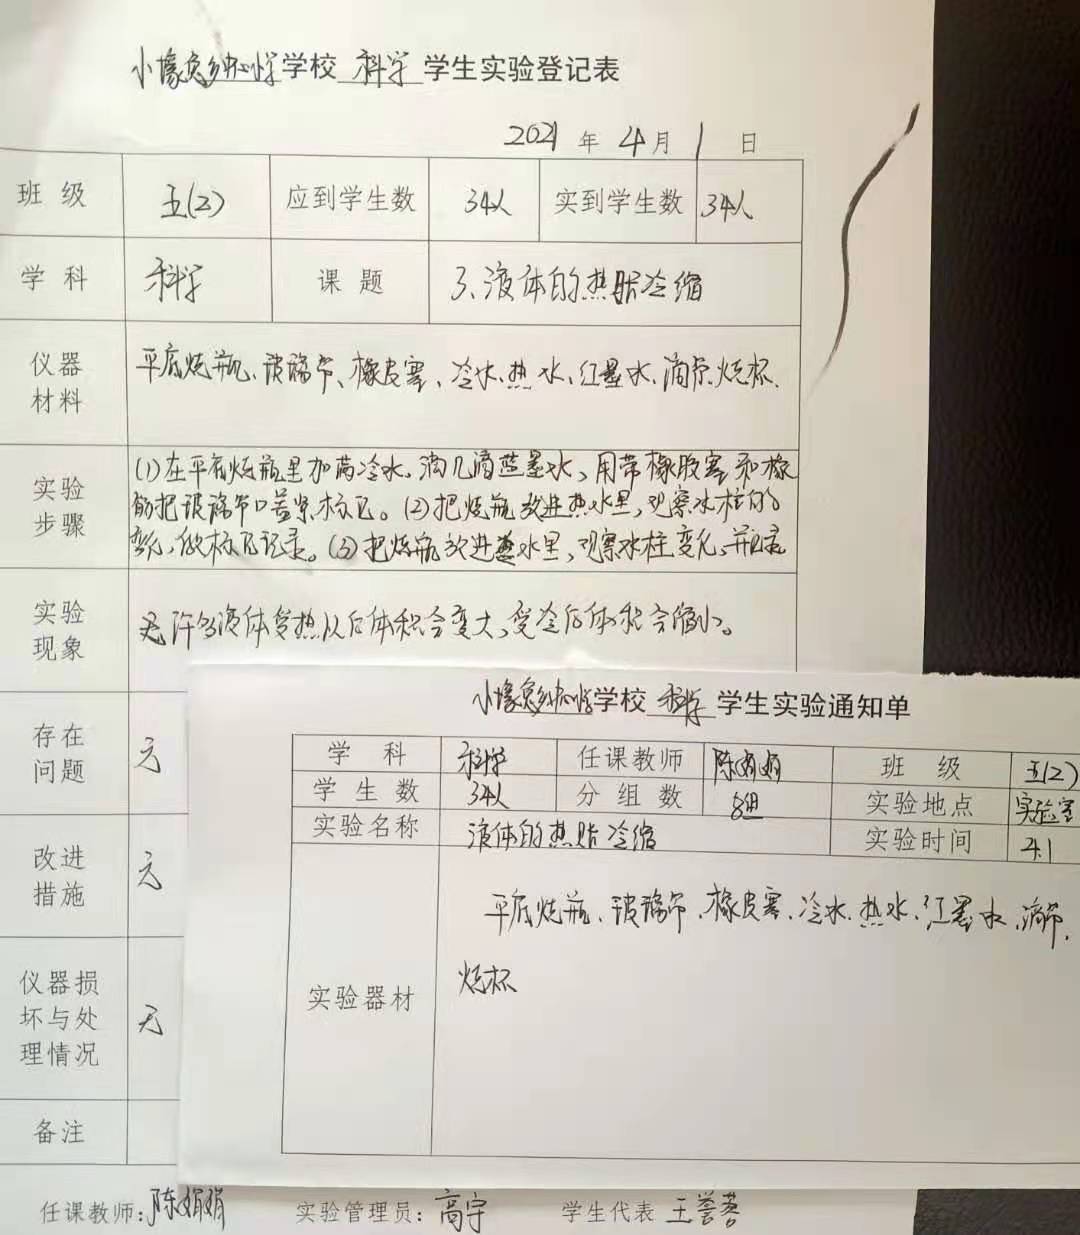 小壕兔乡中心小学学校 科学 学生实验登记表
2021 年 4 月 1 日
班级 五(2) 应到学生数 34人 实到学生数 34人
学科 科学 课题 3、液体的热胀冷缩
仪器材料 平底烧瓶、玻璃管、橡皮塞、冷水、热水、红墨水、滴管、烧杯.
实验步骤 (1)在平底烧瓶里加满冷水,滴几滴蓝墨水,用带橡胶塞和橡
筋把玻璃管口盖紧标记。(2)把烧瓶放进热水里,观察水柱的
变化,做标记记录。(3)把烧瓶放进 水里,观察水柱变化,并记录
实验现象 许多液体受热以后体积会变大,受冷后体积会缩小。
存在问题 无
改进措施 无
仪器损坏与处理情况 无
备注
任课教师:陈娟娟 实验管理员:高宇 学生代表 王
小壕兔乡中心小学学校 科学 学生实验通知单
学科 科学 任课教师 陈娟娟 班级 五(2)
学生数 34人 分组数 8组 实验地点 实验室
实验名称 液体的热胀冷缩 实验时间 4.1
实验器材 平底烧瓶、玻璃管、橡皮塞、冷水、热水、红墨水、滴管、
烧杯